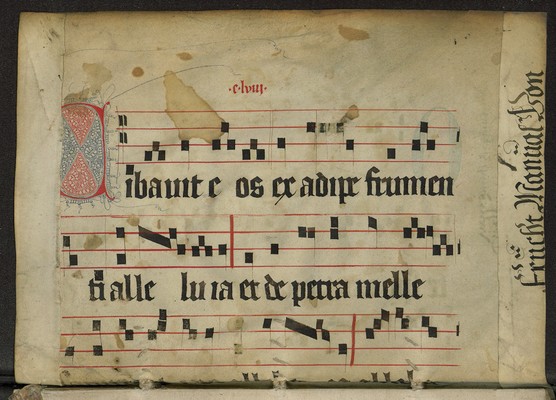 ·c·lviii·
Cibauit e os ex adipe frumen
ti alle lu ia et de petra melle
Frucht Manual Von